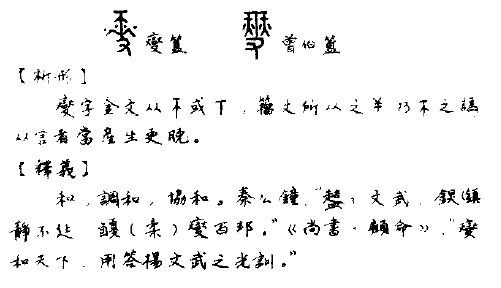 燮簋 曾伯簠
【析形】
燮字金文从不或丅，籀文所从之羊乃不之譌
从言者當產生更晚。
【釋義】
和，調和，協和。秦公鐘："盭文武，鋘(鎮
靜不廷 (柔)燮百邦。"《尚書·顧命》："燮
和天下，用答揚文武之光訓。"